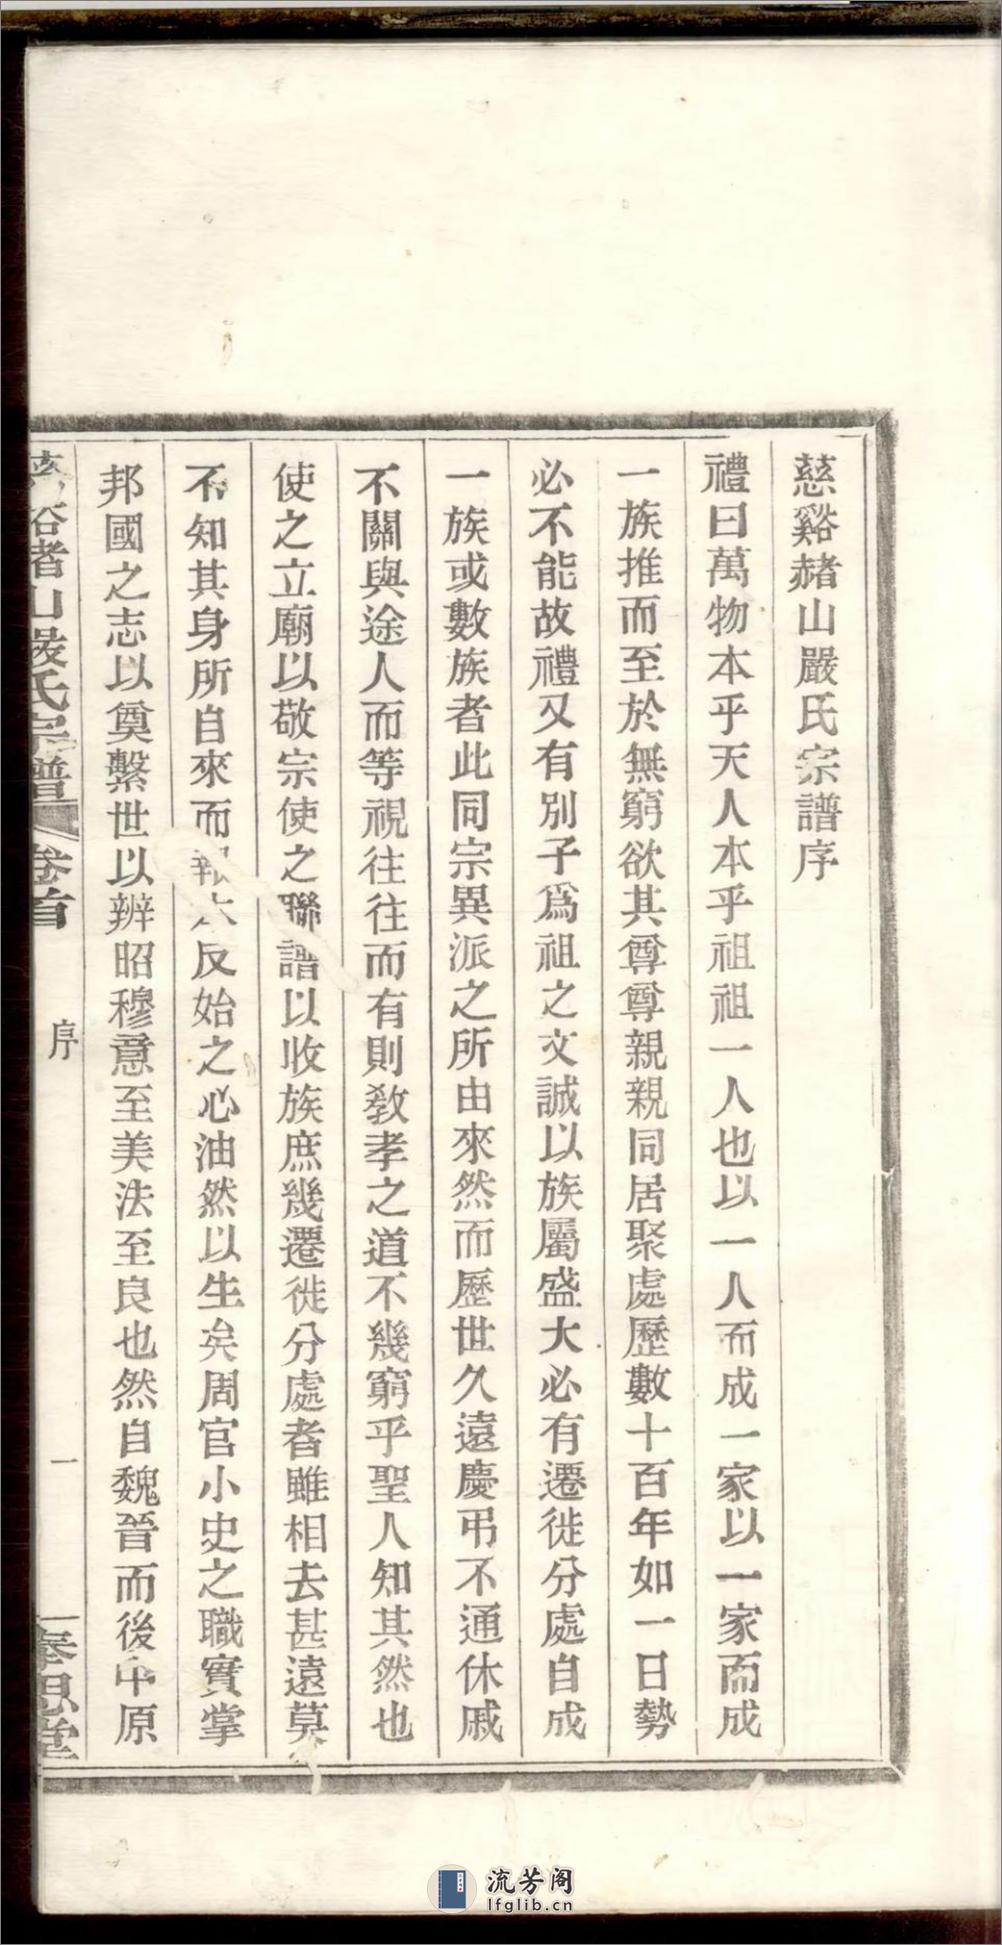 慈谿赭山嚴氏宗譜序
禮曰萬物本乎天人本乎祖祖一人也以一人而成一家以一家而成
一族推而至於無窮欲其尊尊親親同居聚處歷數十百年如一日勢
必不能故禮又有別子爲祖之文誠以族屬盛大必有遷徙分處自成
一族或數族者此同宗異派之所由來然而歷世久遠慶弔不通休戚
不關與途人而等視往往而有則敎孝之道不幾窮乎聖人知其然也
使之立廟以敬宗使之聯譜以收族庶幾遷徙分處者雖相去甚遠莫
不知其身所自來而報本反始之心油然以生矣周官小史之職實掌
邦國之志以奠繫世以辨昭穆意至美法至良也然自魏晉而後中原
山嚴氏宗譜 卷首 序 一 思堂
流芳阁
lfglib.cn